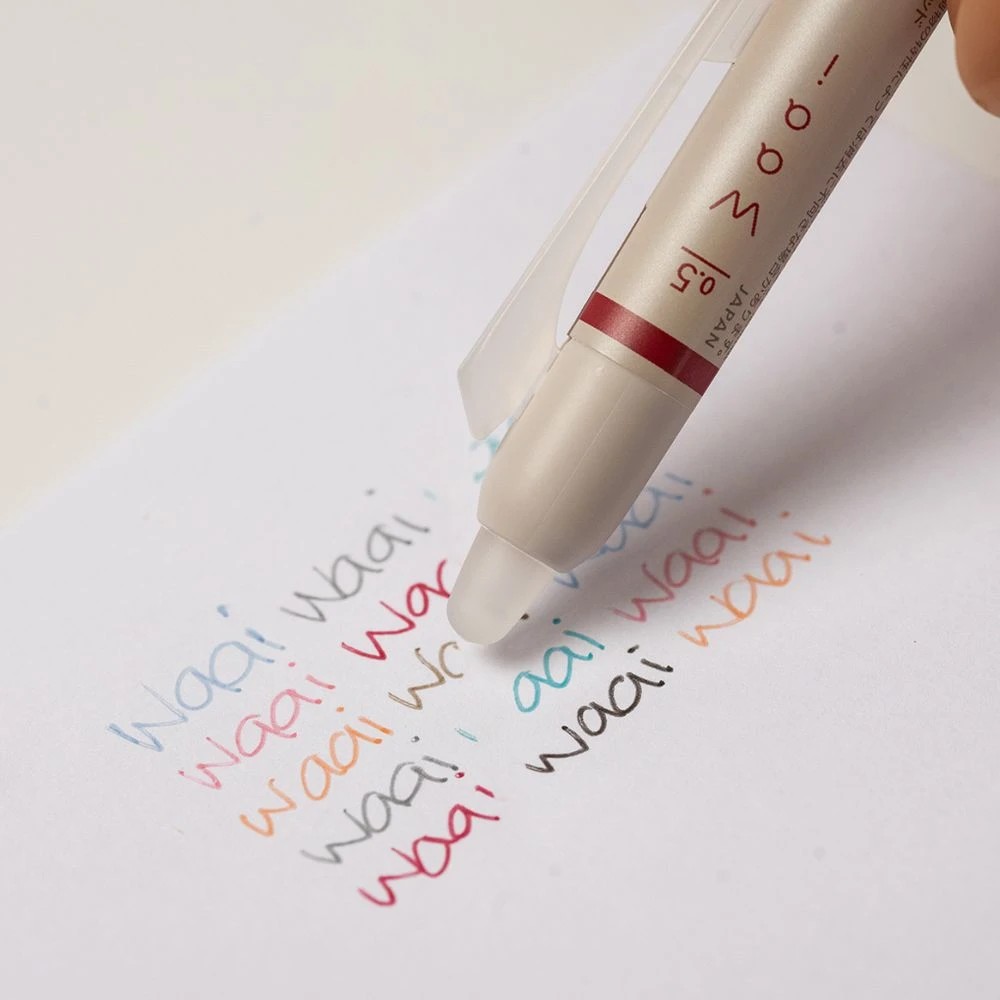 waai
0.5
JAPAN
waai waai
waai wa aai
waai wa waai
waai aai waai
waai waai